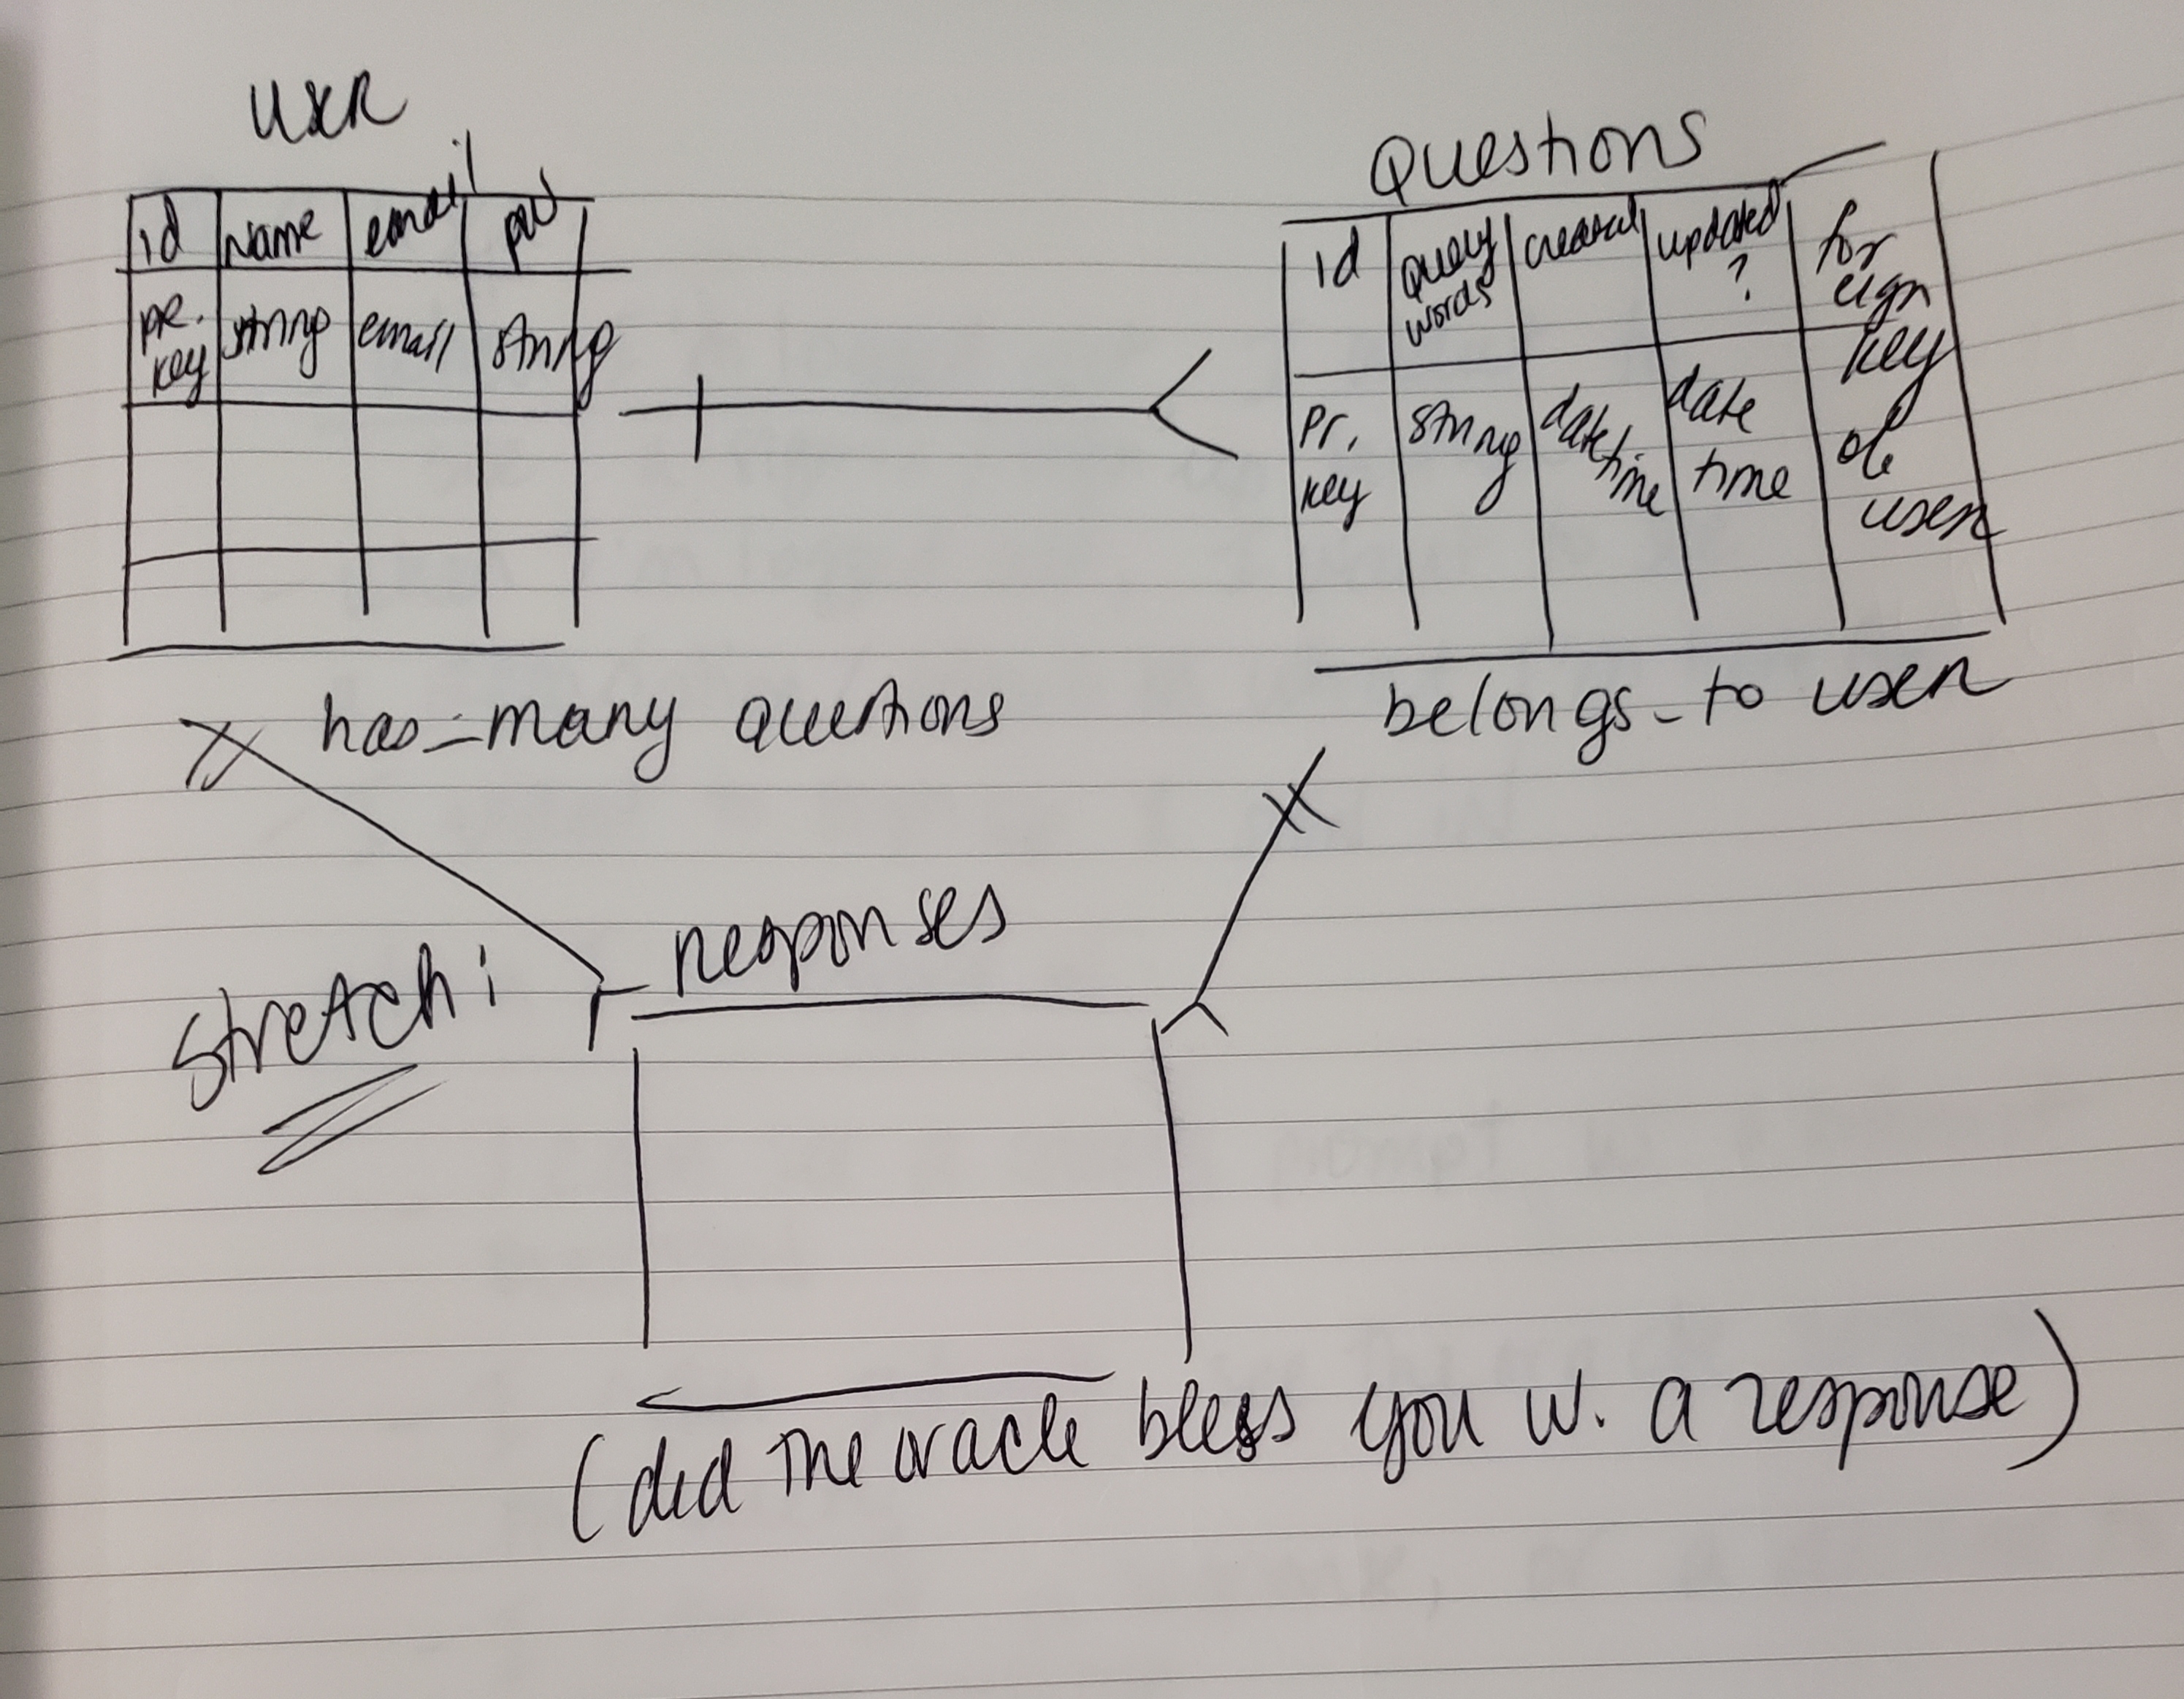 user
id
Name
email
pw
pr.
key
string
email
string
Questions
id
query
words
created
updated
?
for
eign
key
of
user
pr.
key
string
date
time
date
time
has_many questions
belongs_to user
stretch:
responses
(did the oracle bless you w. a response)